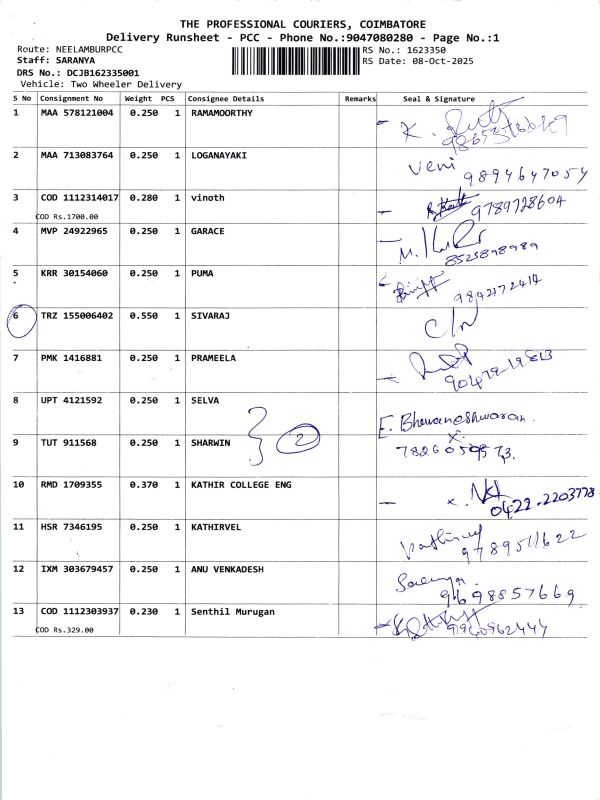 THE PROFESSIONAL COURIERS, COIMBATORE
Delivery Runsheet - PCC - Phone No.:9047080280 - Page No.:1
Route: NEELAMBURPCC
Staff: SARANYA
DRS No.: DCJB162335001
Vehicle: Two Wheeler Delivery
RS No.: 1623350
RS Date: 08-Oct-2025
S No Consignment No Weight PCS Consignee Details Remarks Seal & Signature
1 MAA 578121004 0.250 1 RAMAMOORTHY K.
2 MAA 713083764 0.250 1 LOGANAYAKI Veni
9894647054
3 COD 1112314017 0.280 1 vinoth 9789728604
COD Rs.1700.00
4 MVP 24922965 0.250 1 GARACE
8525898989
5 KRR 30154060 0.250 1 PUMA
9842172414
6 TRZ 155006402 0.550 1 SIVARAJ
7 PMK 1416881 0.250 1 PRAMEELA
8 UPT 4121592 0.250 1 SELVA E. Bhuvaneshwaran.
9 TUT 911568 0.250 1 SHARWIN 2
10 RMD 1709355 0.370 1 KATHIR COLLEGE ENG
0422-2203778
11 HSR 7346195 0.250 1 KATHIRVEL Kathirvel
9789511622
12 IXM 303679457 0.250 1 ANU VENKADESH Saranya.
9698857669
13 COD 1112303937 0.230 1 Senthil Murugan
9960962444
COD Rs.329.00